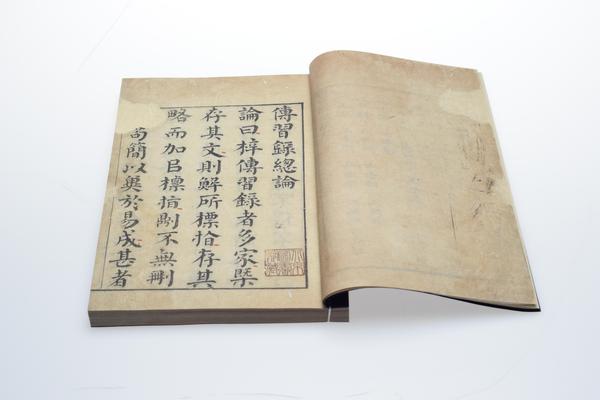 傳習録總論
論曰梓傳習録者多家槩
存其文則解所標恉存其
略而加㠯標恉則不無刪
苟簡以兾於易成甚者